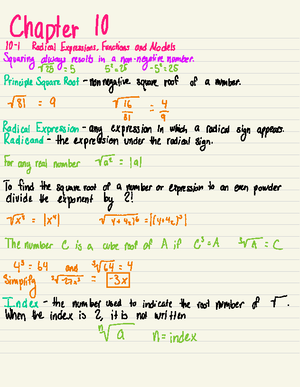 Chapter 10
10-1 Radical Expressions, Functions and Models
Squaring always results in a non-negative number.
√25 = 5 5² = 25 -5² = 25
Principle Square Root - nonnegative square root of a number.
√81 = 9 √16/81 = 4/9
Radical Expression - any expression in which a radical sign appears.
Radicand - the expression under the radical sign.
For any real number √a² = |a|
To find the square root of a number or expression to an even powder
divide the exponent by 2!
√x⁸ = |x⁴| √(y+4z)⁶ = |(y+4z)³|
The number C is a cube root of A if C³=A ³√A = C
4³ = 64 and ³√64 = 4
Simplify ³√-27x³ = -3x
Index - the number used to indicate the root number of √.
When the index is 2, it is not written
ⁿ√a n = index